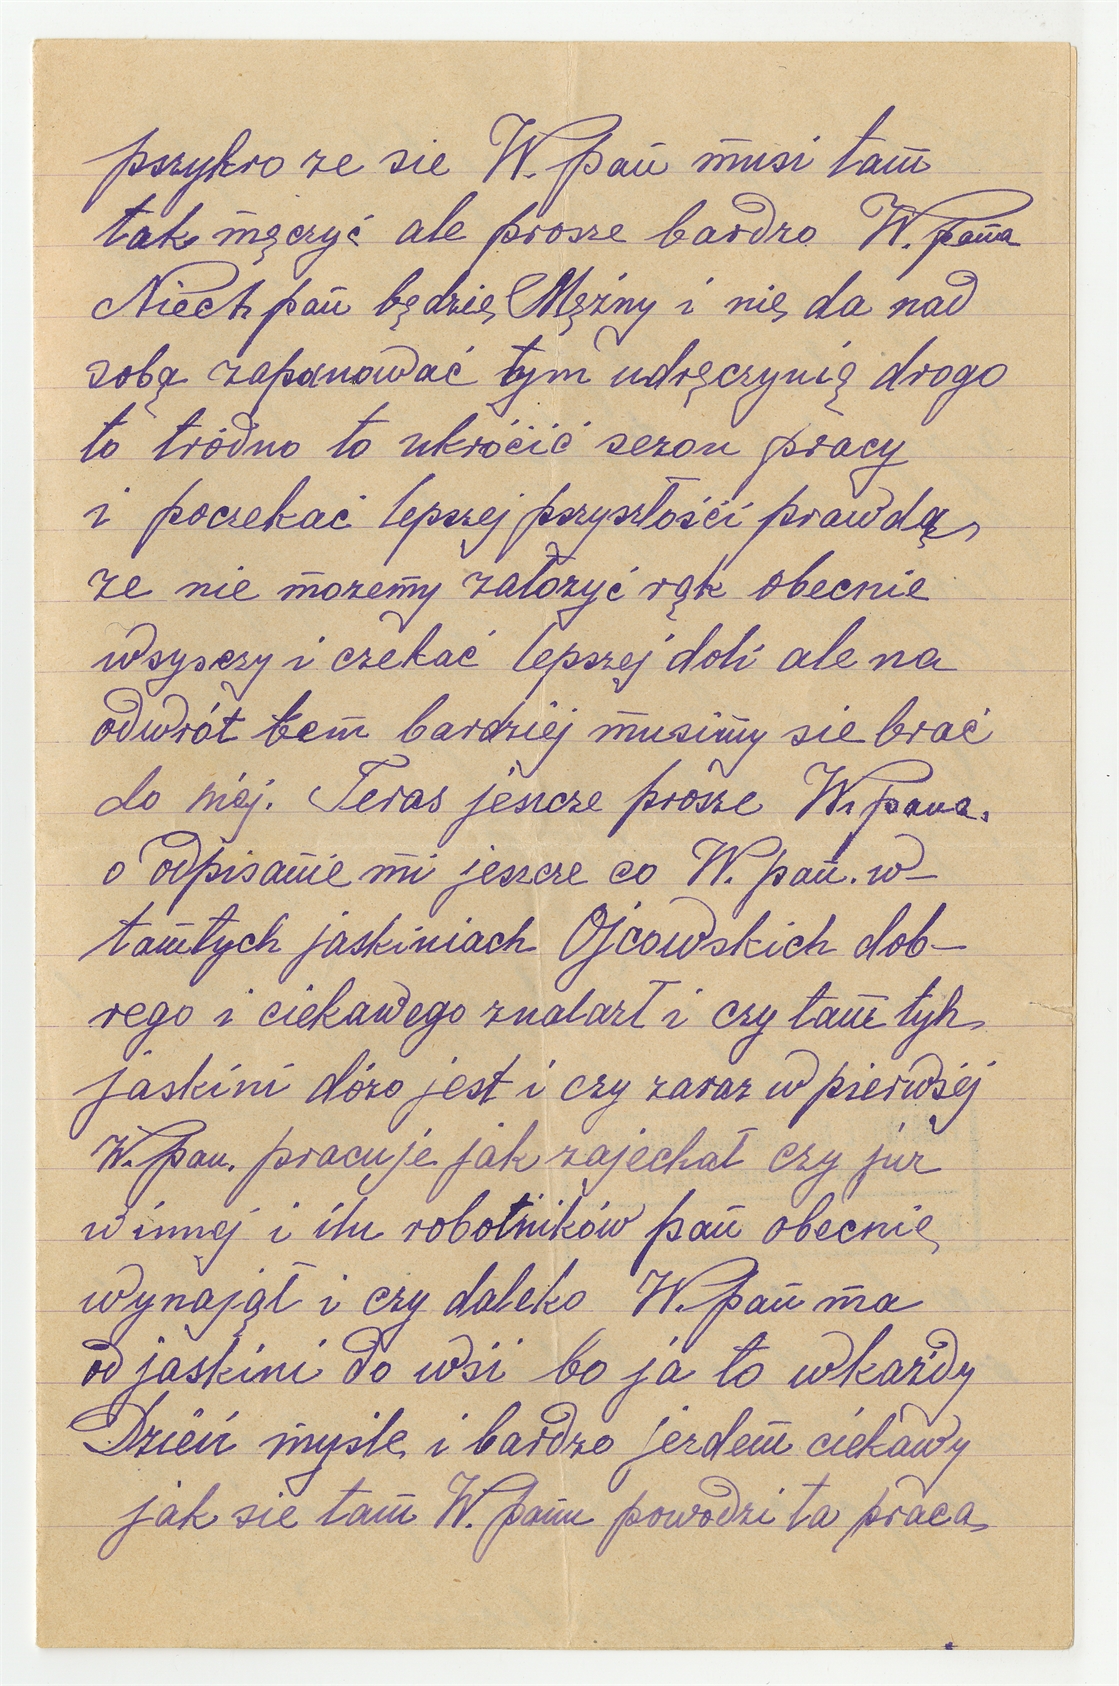 pszykro ze sie W. pan musi tam
tak męczyć ale prosze bardzo W. pana
Niech pan będzię Mężny i nię da nad
sobą zapanować tym udręczynią drogo
to tródno to ukróćić sezon pracy
i poczekać lepszej pszyszłośći prawdą
ze nie mozemy załozyć rąk obecnie
wsysczy i czekać lepszej doli ale na
odwrót tem bardziej musimy sie brać
do niej. Teras jeszcze prosze W. pana.
o odpisanie mi jeszcze co W. pan. w-
tamtych jaskiniach Ojcowskich dob-
rego i ciekawego znalazł i czy tam tyh
jaskini dózo jest i czy zaraz w pierwsej
W. pan. pracuje jak zajechał czy juz
w innej i ilu robotników pan obecnię
wynająt i czy daleko W. pan ma
od jaskini do wsi bo ja to wkażdy
Dzień mysle i bardzo jezdem ciekawy
jak sie tam W. panu powodzi ta praca